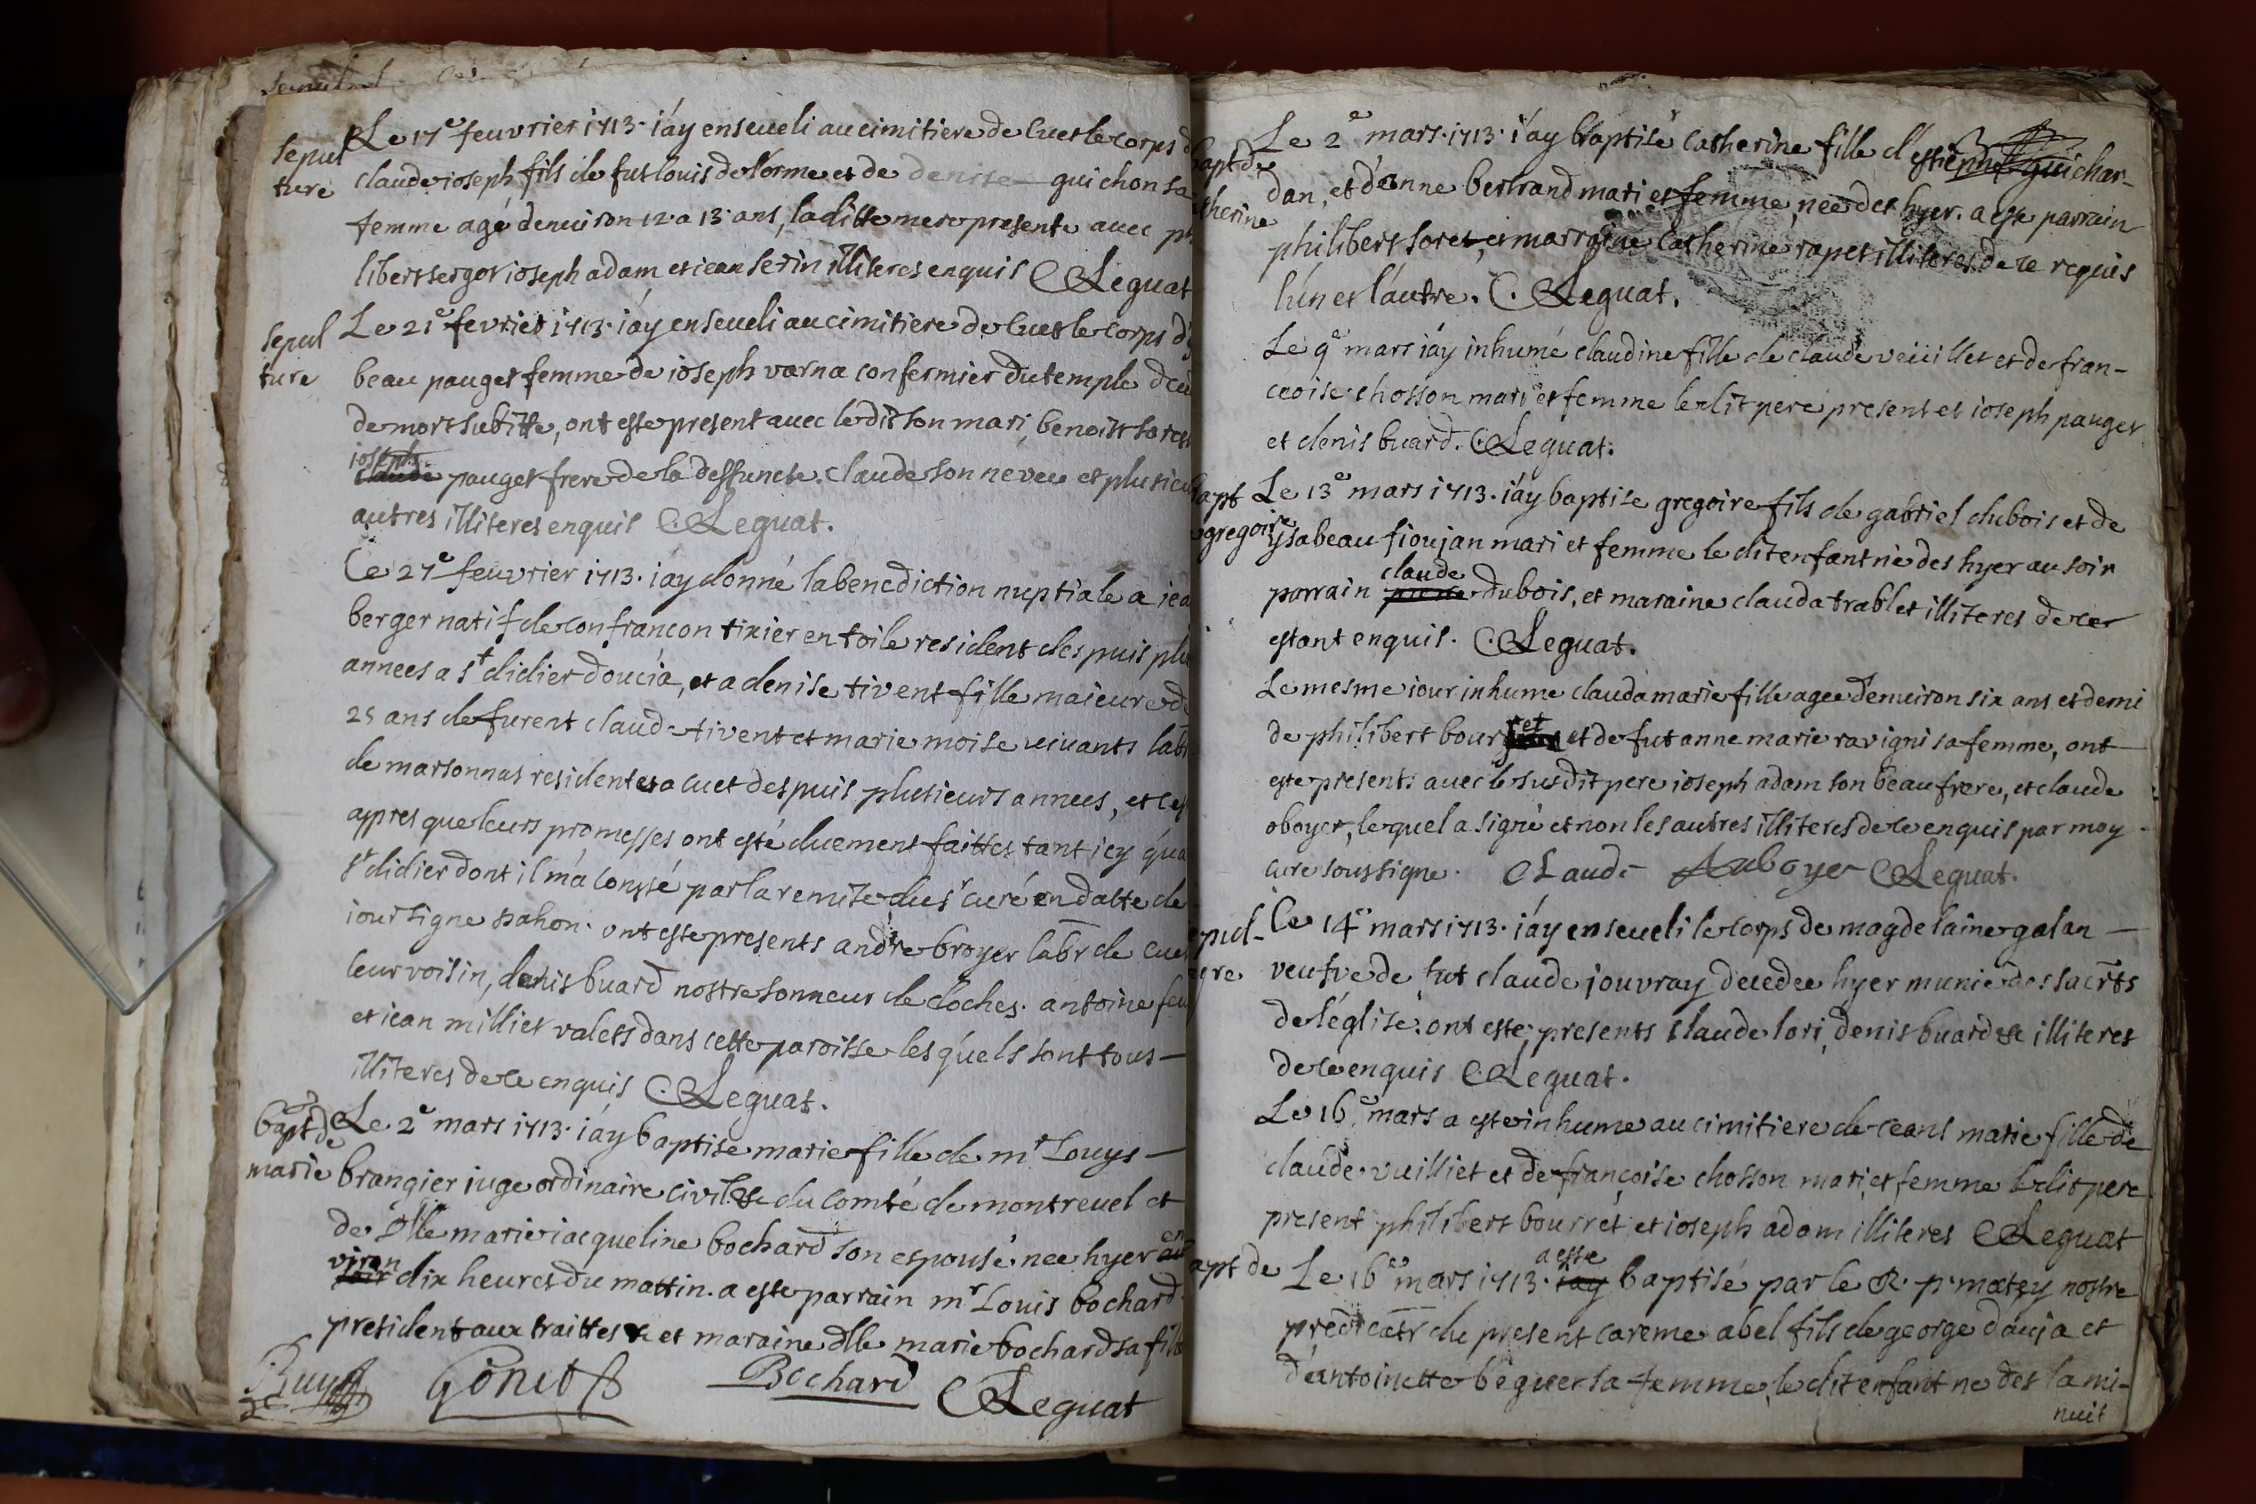 sepul
ture
Le 17e feuvrier 1713. i'ay enseueli au cimitiere de Cuet le corps d
claude ioseph fils de fut louis delorme et de denise guichon sa
femme agé denuiron 12 a 13 ans, laditte mere presente auec ph
libert sergot ioseph adam et iean serin illiteres enquis C. Leguat
sepul
ture
Le 21e fevrier 1713. i'ay enseueli au cimitiere de Cuet le corps d'y
beau pauget femme de ioseph varna confermier du temple dec
de mort subitte, ont este present auec le dit son mari, benoist soret
ioseph
claude pauget frere de la deffuncte. claude son neveu et plusieu
autres illiteres enquis C. Leguat.
Ce 27e feuvrier 1713. i'ay donné la benediction nuptiale a iea
berger natif de confrancon tixier en toile resident despuis plu
annees a st didier doucia, et a denise tivent fille maieure de
25 ans de furent claude tivent et marie moise uiuants labr
de marsonnas residentes a cuet despuis plusieurs annees, et ce
appres que leurs promesses ont esté duement faittes tant icy qúa
st didier dont il má consté par la remise du sr curé en datte de
iour signe pahon. ont este presents andre broyer labr de cuet
leur voisin, denis buard nostre sonneur de cloches. antoine feu
et iean milliet valets dans cette paroisse lesquels sont tous
illiteres de ce enquis C. Leguat.
bapt de
marie
Le 2e mars 1713. i'ay baptise marie fille de mr Louys
brangier iuge ordinaire civil &c du comté de montrevel et
de dlle marie iacqueline bochard son espouse nee hyer en
viron
soir dix heures du mattin. a este parrain mr Louis bochard
president aux traittes &c et maraine dlle marie bochard sa fille
Bochard
C. Leguat
bapt de
catherine
Le 2e mars 1713. i'ay baptisé catherine fille d'estienne guichar-
dan, et d'anne bertrand mari et femme, née des hyer. a este parrain
philibert soret, et marraine catherine rapet illiteres de ce requis
lún et láutre. C. Leguat.
Le 9e mars iáy inhumé claudine fille de claude veüillet et de fran-
coise chosson mari et femme ledit pere present et ioseph pauget
et denis buard. C. Leguat.
bapt
gregoire
Le 13e mars 1713. iáy baptise gregoire fils de gabriel dubois et de
ysabeau fioujan mari et femme le dit enfant né des hyer au soir
claude
parrain dubois, et maraine clauda trablet illiteres de ce
estant enquis. C. Leguat.
Le mesme iour inhume clauda marie fille agee d'enuiron six ans et demi
de philibert bourret et de fut anne marie ravigni sa femme, ont
este present auec le susdit pere ioseph adam son beau frere, et claude
oboyer, lequel a signé et non les autres illiteres de ce enquis par moy
cure soussigne. Claude Auboyer C. Leguat.
sepul-
ture
Ce 14e mars 1713. iáy enseueli le corps de magdelaine galan
veufve de fut claude jouvray decedee hyer munie des sacrts
de l'église. ont este presents claude lori, denis buard &c illiteres
de ce enquis C. Leguat.
Le 16e mars a este inhume au cimitiere de ceans marie fille de
claude vuilliet et de françoise chosson mari et femme ledit pere
present philibert bourret et ioseph adam illiteres C. Leguat
bapt de
a este
Le 16e mars 1713. iay baptisé par le R. p. matzy nostre
predicatr du present careme abel fils de george dauja et
d'antoinette beguer sa femme, le dit enfant ne des la mi-
nuit